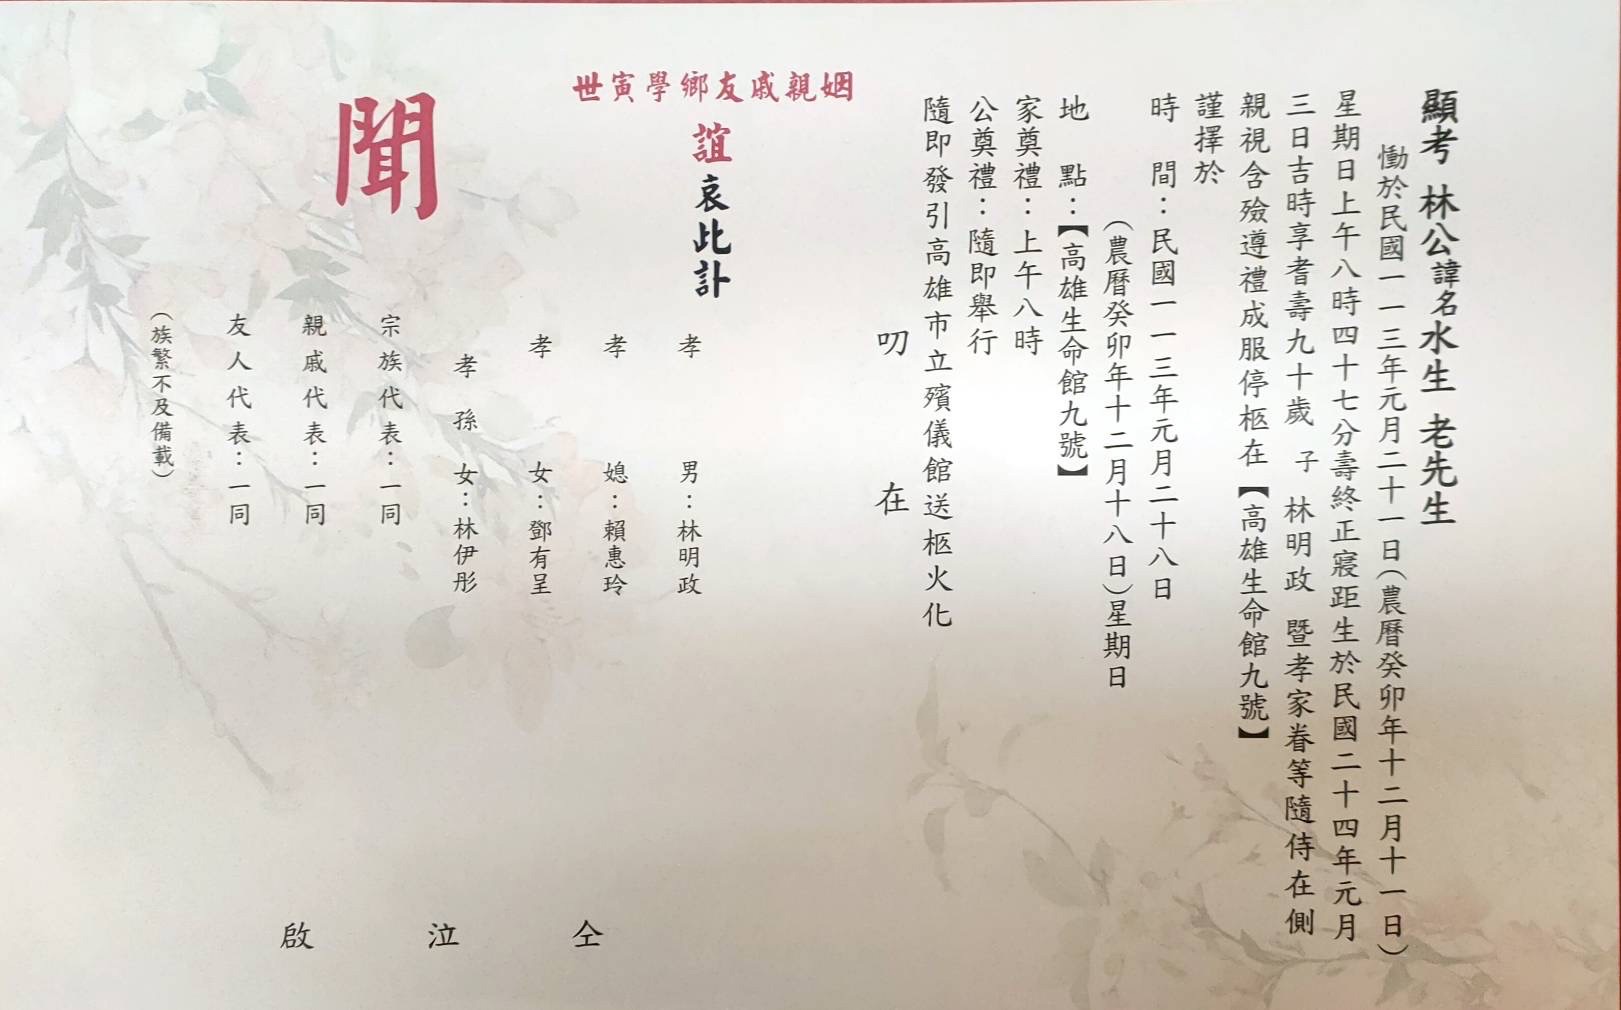 顯考 林公諱名水生 老先生
慟於民國一一三年元月二十一日(農曆癸卯年十二月十一日)
星期日上午八時四十七分壽終正寢距生於民國二十四年元月
三日吉時享耆壽九十歲 子 林明政 暨孝家眷等隨侍在側
親視含殮遵禮成服停柩在【高雄生命館九號】
謹擇於
時 間：民國一一三年元月二十八日
(農曆癸卯年十二月十八日)星期日
地 點：【高雄生命館九號】
家奠禮：上午八時
公奠禮：隨即舉行
隨即發引高雄市立殯儀館送柩火化
叨 在
姻親戚友鄉學寅世
誼哀此訃
聞
孝 男：林明政
孝 媳：賴惠玲
孝 女：鄧有呈
孝孫 女：林伊彤
宗族代表：一同
親戚代表：一同
友人代表：一同
(族繁不及備載)
仝 泣 啟